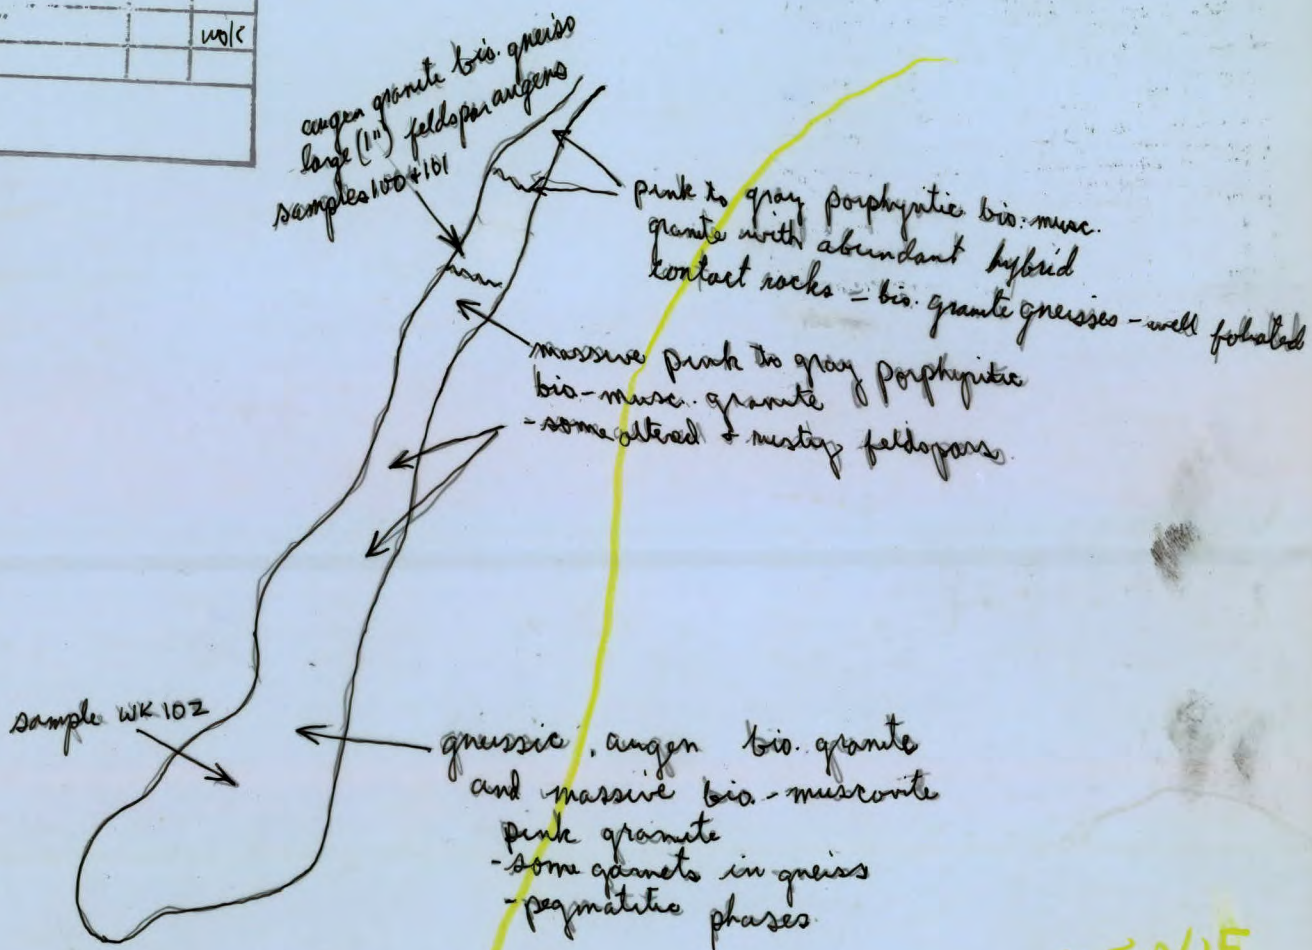 wo/c
augen granite bio. gneiss
large (1") feldspar augens
samples 100 + 101
pink to gray porphyritic bio. musc.
granite with abundant hybrid
contact rocks = bio. granite gneisses - well foliated
massive pink to gray porphyritic
bio-musc. granite
- some altered + rusty feldspars
sample WK 102
gneissic, augen bio. granite
and massive bio. - muscovite
pink granite
- some garnets in gneiss
- pegmatitic phases